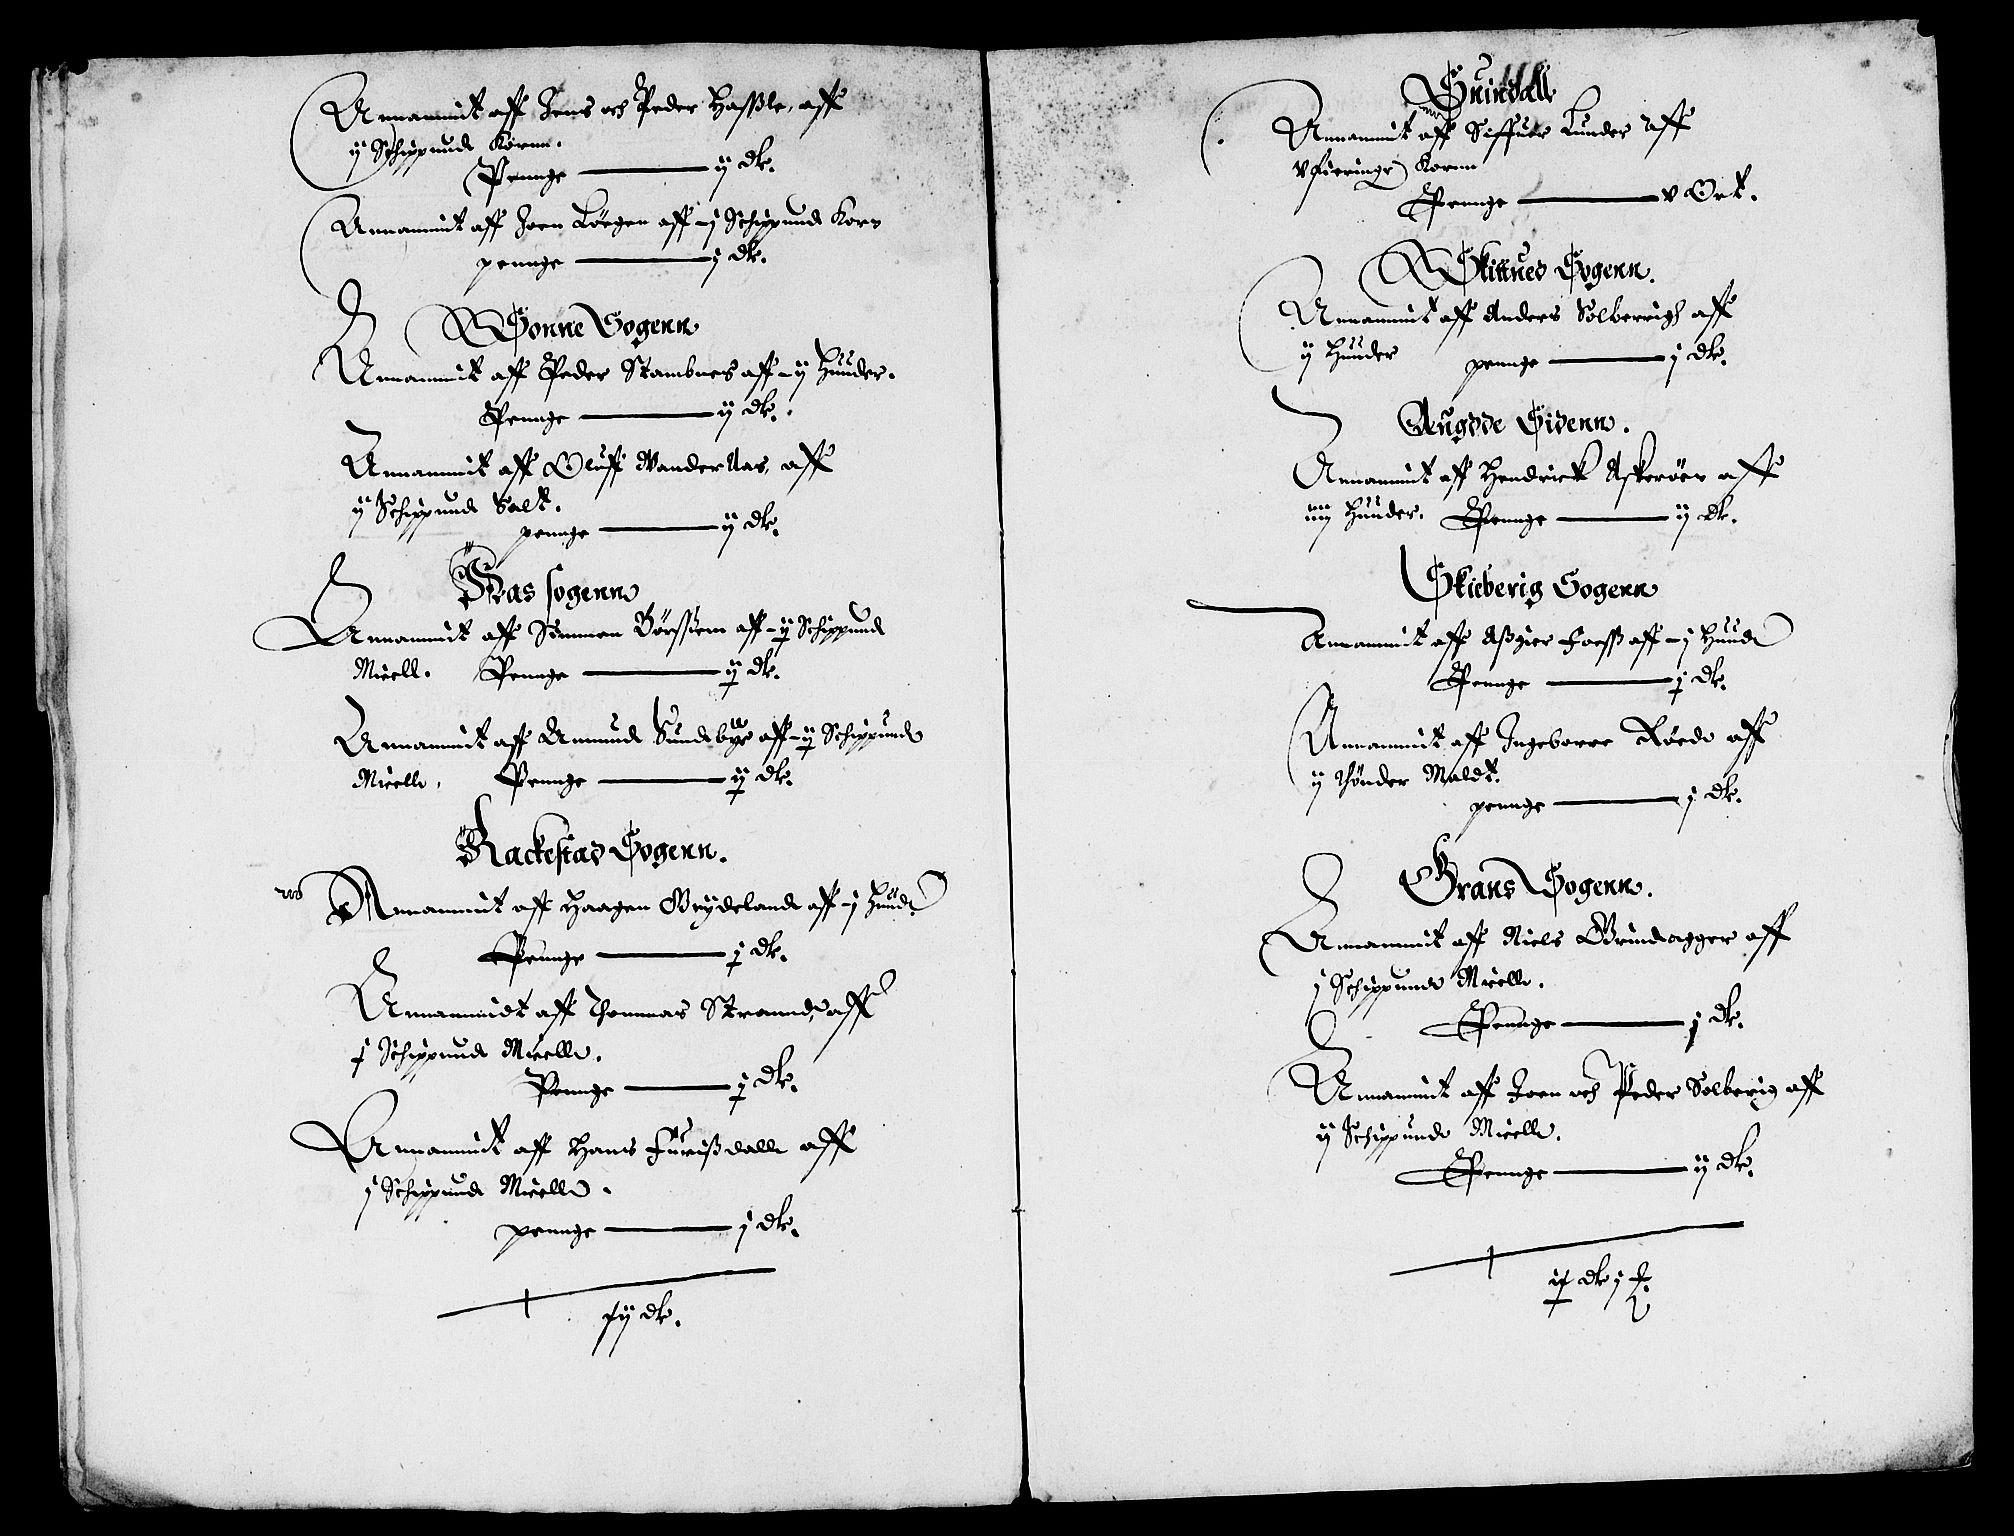 Annammit aff Jens och Peder Haßle, aff
ij Schippund Kornn.
Pennge ——— ij dlr.
Annammit aff Joen Börgen aff – j Schippund Korn
pennge ——— j dlr.
Sonne Sogenn
Annammit aff Peder Stambnes aff – ij Huuder.
Pennge ——— ij dlr.
Annammit aff Oluff Vander Aas, aff
ij Schippund Salt.
pennge ——— ij dlr.
Aas sogenn
Annammit aff Simmen Börssem aff – ij Schippund
Miell. Pennge ——— ij dlr.
Annammit aff Amund Sundebye aff – ij Schippund
Miell. Pennge ——— ij dlr.
Rackestad Sogenn.
Annammit aff Haagen Grydeland aff – j Huud
Pennge ——— j dlr.
Annammidt aff Thommas Strannd, aff
j Schippund Miell.
Pennge ——— j dlr.
Annammit aff Hans Furißdalle aff
j Schippund Miell.
pennge ——— j dlr.
dlr.
Suindall
Annammit aff Siffuer Lunder aff
v fieringr Kornn
Pennge ——— v Ort.
Skittued Sogenn.
Annammit aff Anders Solberrigh aff
ij Huuder pennge ——— j dlr.
Augdde Sidenn.
Annammit aff Hendrick Askeröen aff
iiij Huuder. Pennge ——— ij dlr.
Skieberig Sogenn
Annammit aff Aßgier Foeß aff – j Huud
Pennge ——— j dlr.
Annammit aff Ingeborre Röed aff
ij thönder Maldt.
pennge ——— j dlr.
Grans Sogenn.
Annammit aff Niels Grindagger aff
j Schippund Miell.
Pennge ——— j dlr.
Annammit aff Joen och Peder Solberig aff
ij Schippund Miell.
Pennge ——— ij dlr.
dlr j